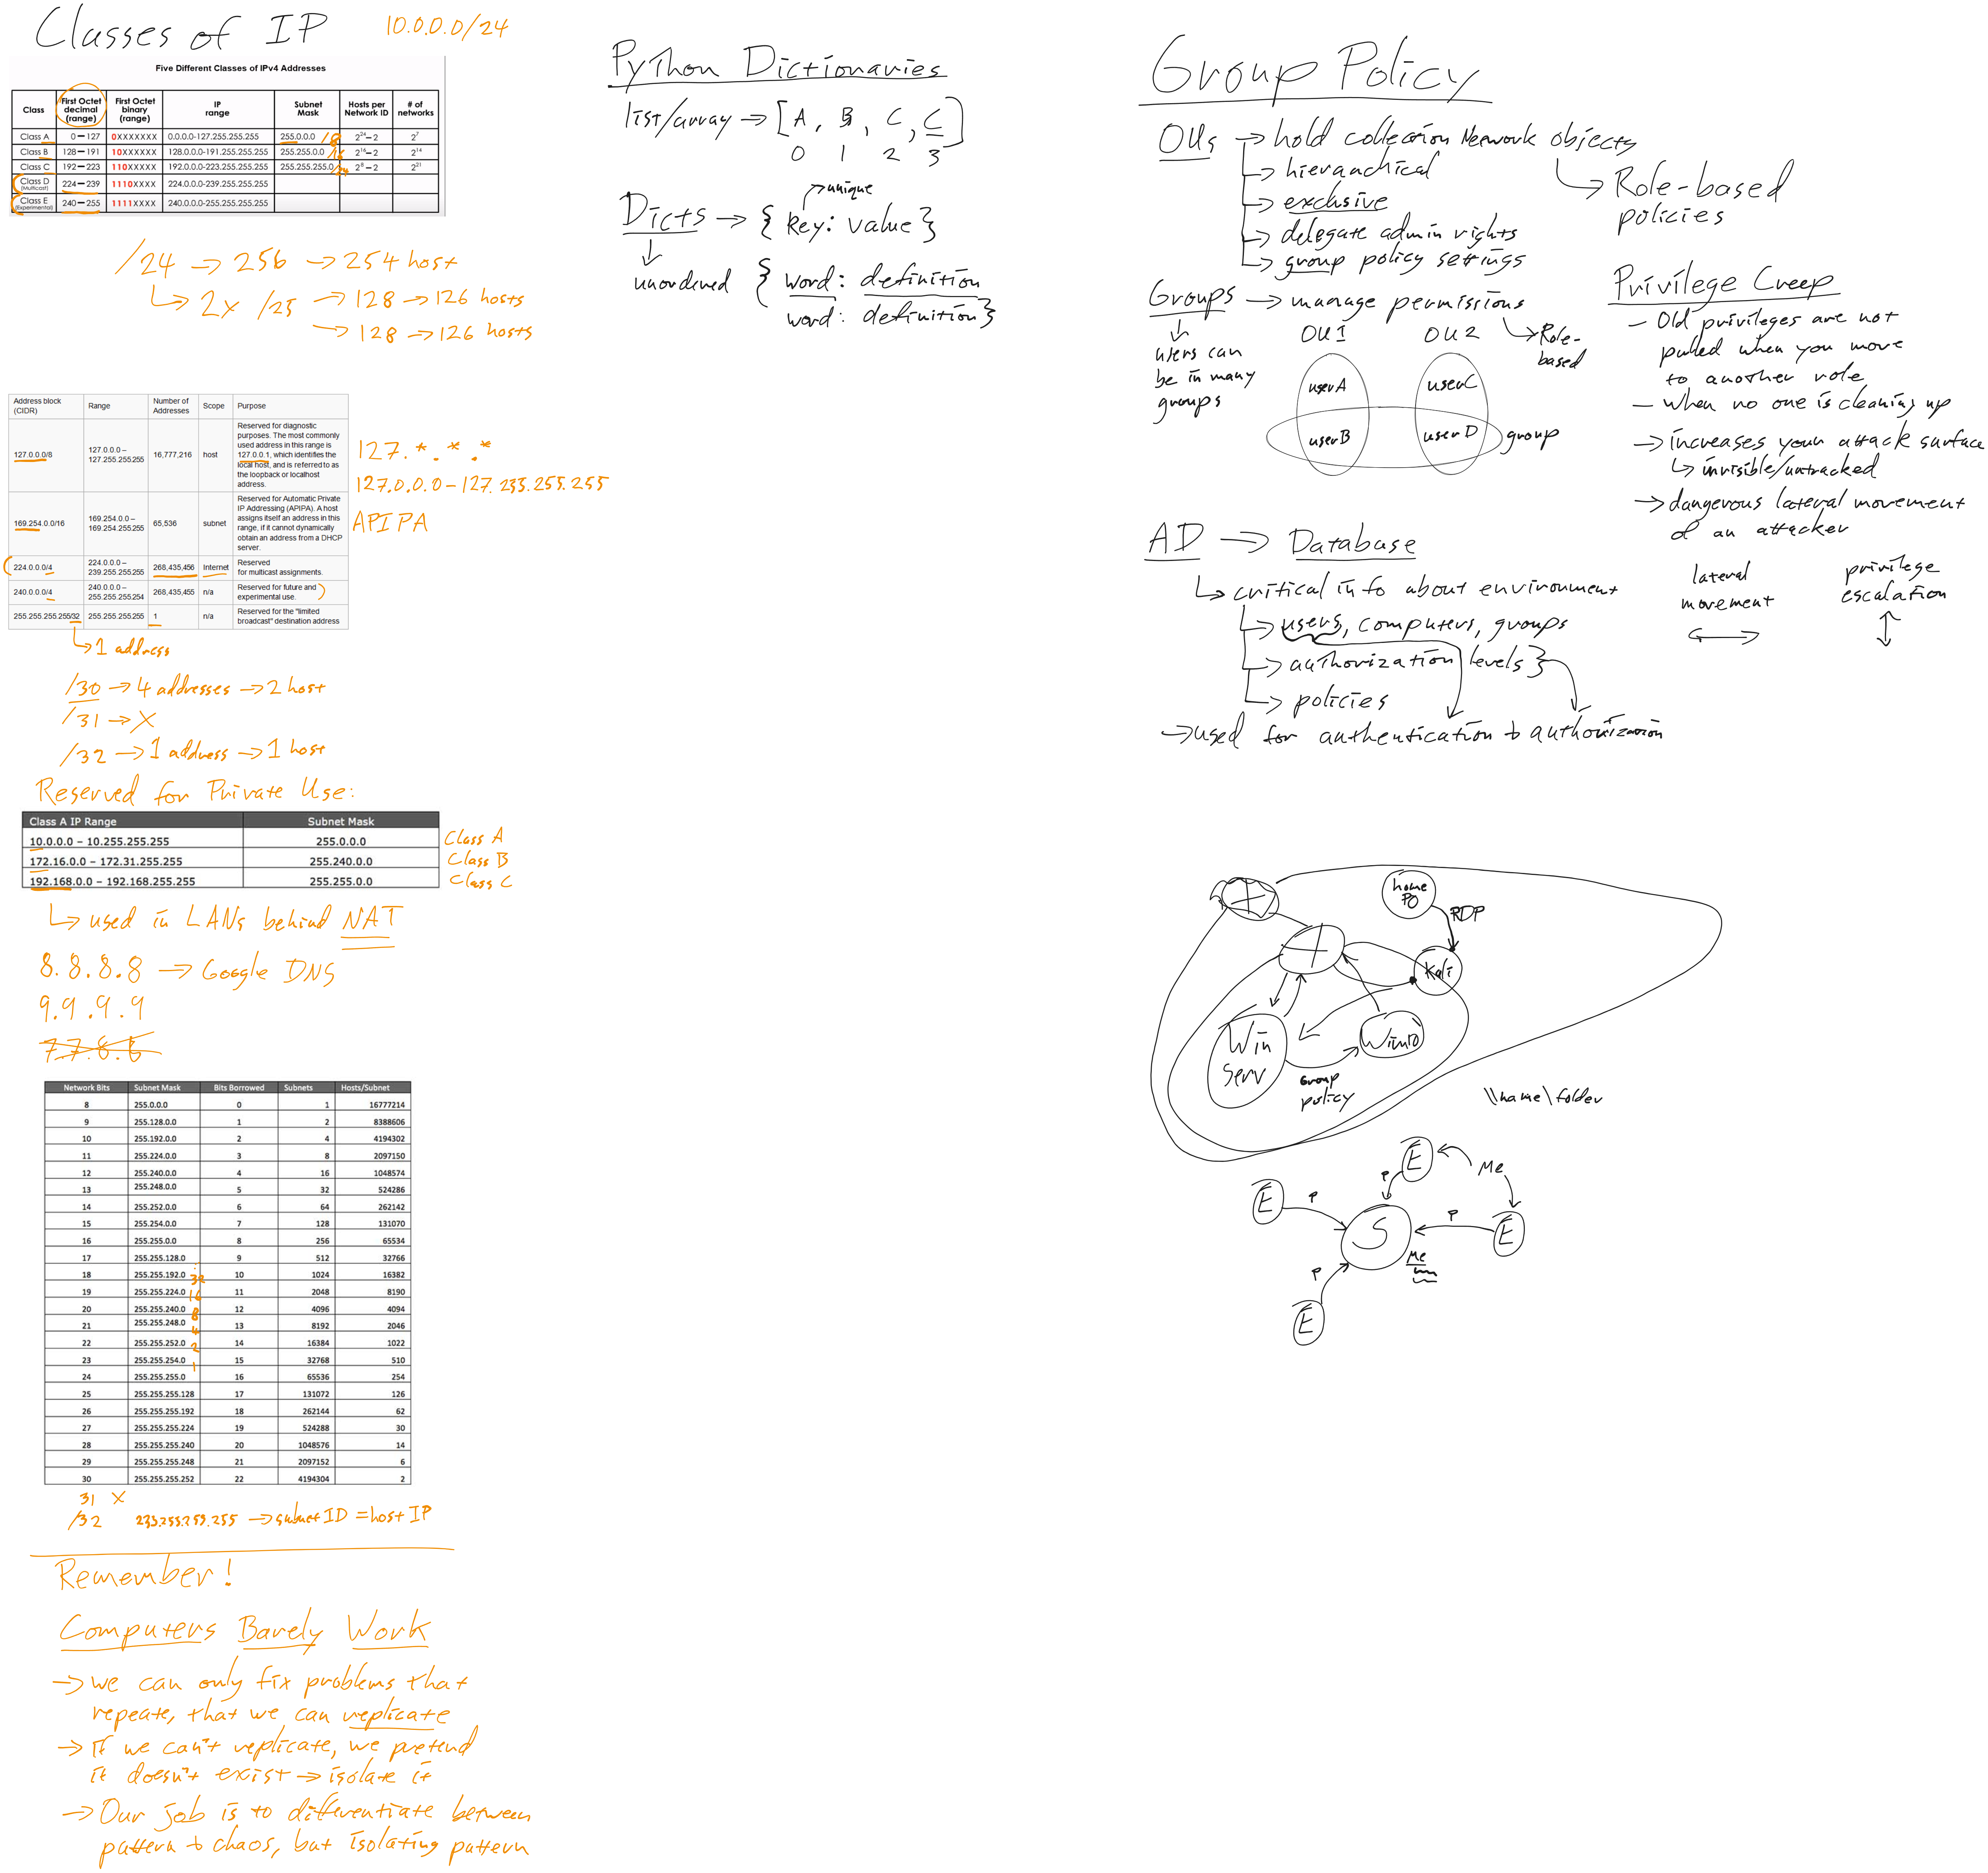 Classes of IP
10.0.0.0/24
Five Different Classes of IPv4 Addresses
Class First Octet decimal (range) First Octet binary (range) IP range Subnet Mask Hosts per Network ID # of networks
Class A 0–127 0XXXXXXX 0.0.0.0-127.255.255.255 255.0.0.0 /8 2^24–2 2^7
Class B 128–191 10XXXXXX 128.0.0.0-191.255.255.255 255.255.0.0 /16 2^16–2 2^14
Class C 192–223 110XXXXX 192.0.0.0-223.255.255.255 255.255.255.0 /24 2^8–2 2^21
Class D (Multicast) 224–239 1110XXXX 224.0.0.0-239.255.255.255
Class E (Experimental) 240–255 1111XXXX 240.0.0.0-255.255.255.255
/24 → 256 → 254 host
↳ 2x /25 → 128 → 126 hosts
→ 128 → 126 hosts
Address block (CIDR) Range Number of Addresses Scope Purpose
127.0.0.0/8 127.0.0.0– 127.255.255.255 16,777,216 host
Reserved for diagnostic
purposes. The most commonly
used address in this range is
127.0.0.1, which identifies the
local host, and is referred to as
the loopback or localhost
address.
127.*.*.*
127.0.0.0-127.255.255.255
169.254.0.0/16 169.254.0.0– 169.254.255.255 65,536 subnet
Reserved for Automatic Private
IP Addressing (APIPA). A host
assigns itself an address in this
range, if it cannot dynamically
obtain an address from a DHCP
server.
APIPA
224.0.0.0/4 224.0.0.0– 239.255.255.255 268,435,456 Internet Reserved for multicast assignments.
240.0.0.0/4 240.0.0.0– 255.255.255.254 268,435,455 n/a Reserved for future and experimental use.
255.255.255.255/32 255.255.255.255 1 n/a Reserved for the "limited broadcast" destination address
↳ 1 address
/30 → 4 addresses → 2 host
/31 → X
/32 → 1 address → 1 host
Reserved for Private Use:
Class A IP Range Subnet Mask
10.0.0.0 – 10.255.255.255 255.0.0.0 Class A
172.16.0.0 – 172.31.255.255 255.240.0.0 Class B
192.168.0.0 – 192.168.255.255 255.255.0.0 Class C
↳ used in LANs behind NAT
8.8.8.8 → Google DNS
9.9.9.9
Network Bits Subnet Mask Bits Borrowed Subnets Hosts/Subnet
8 255.0.0.0 0 1 16777214
9 255.128.0.0 1 2 8388606
10 255.192.0.0 2 4 4194302
11 255.224.0.0 3 8 2097150
12 255.240.0.0 4 16 1048574
13 255.248.0.0 5 32 524286
14 255.252.0.0 6 64 262142
15 255.254.0.0 7 128 131070
16 255.255.0.0 8 256 65534
17 255.255.128.0 9 512 32766
18 255.255.192.0 32 10 1024 16382
19 255.255.224.0 16 11 2048 8190
20 255.255.240.0 8 12 4096 4094
21 255.255.248.0 4 13 8192 2046
22 255.255.252.0 2 14 16384 1022
23 255.255.254.0 1 15 32768 510
24 255.255.255.0 16 65536 254
25 255.255.255.128 17 131072 126
26 255.255.255.192 18 262144 62
27 255.255.255.224 19 524288 30
28 255.255.255.240 20 1048576 14
29 255.255.255.248 21 2097152 6
30 255.255.255.252 22 4194304 2
31 X
/32 255.255.255.255 → subnet ID = host IP
Remember!
Computers Barely Work
→ we can only fix problems that
repeate, that we can replicate
→ If we can't replicate, we pretend
it doesn't exist → isolate it
→ Our job is to differentiate between
pattern + chaos, but isolating pattern
Python Dictionaries
list/array → [A, B, C, C]
0 1 2 3
unique
Dicts → { key: value }
unordered { word: definition
word: definition}
Group Policy
OUs → hold collection Network objects
↳ hierarchical
↳ exclusive
↳ delegate admin rights
↳ group policy settings
↳ Role-based
policies
Groups → manage permissions
↳ Role-
based
users can
be in many
groups
OU1 OU2
userA userC
userB userD group
Privilege Creep
- Old privileges are not
pulled when you move
to another role
- When no one is cleaning up
→ increases your attack surface
↳ invisible/untracked
→ dangerous lateral movement
of an attacker
lateral
movement
privilege
escalation
AD → Database
↳ critical info about environment
↳ users, computers, groups
↳ authorization levels}
↳ policies
→ used for authentication + authorization
home
RDP
Kali
Win
Serv
Win10
Group
policy
\\name\folder
E Me
P
E P
S
P E
Me
P
E